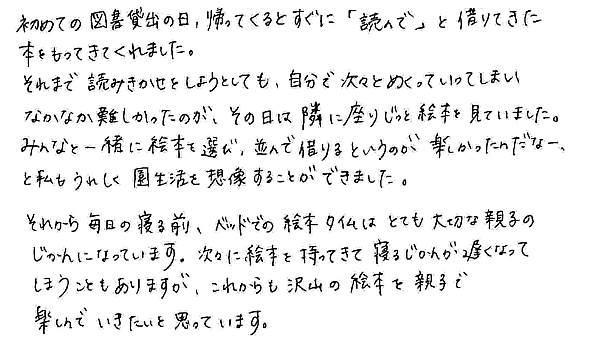 初めての図書貸出の日、帰ってくるとすぐに「読んで」と借りてきた
本をもってきてくれました。
それまで読みきかせをしようとしても、自分で次々とめくっていってしまい
なかなか難しかったのが、その日は隣に座りじっと絵本を見ていました。
みんなと一緒に絵本を選び、並んで借りるというのが楽しかったんだなー、
と私もうれしく園生活を想像することができました。
それから毎日の寝る前、ベッドでの絵本タイムはとても大切な親子の
じかんになっています。次々に絵本を持ってきて寝るじかんが遅くなって
しまうこともありますが、これからも沢山の絵本を親子で
楽しんでいきたいと思っています。